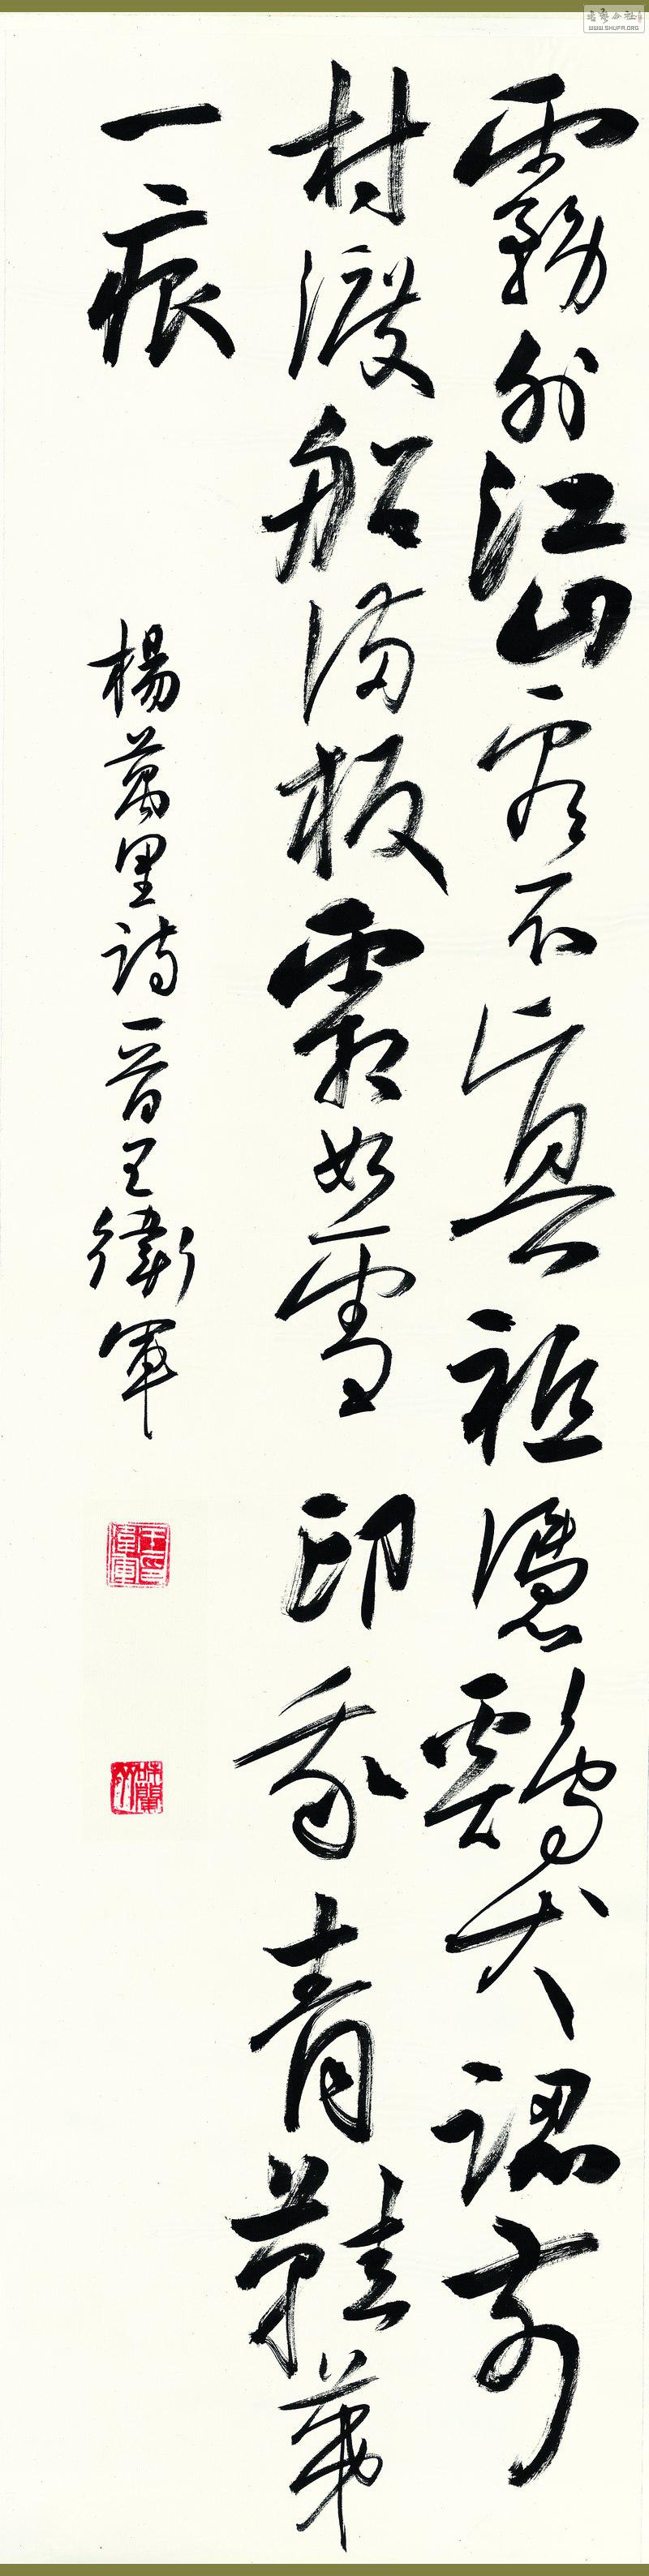 霧外江山看不真祗憑鷄犬認前
村渡船滿板霜如雪印我青鞋第
一痕
楊萬里詩晉王衛軍
WWW.SHUFA.ORG